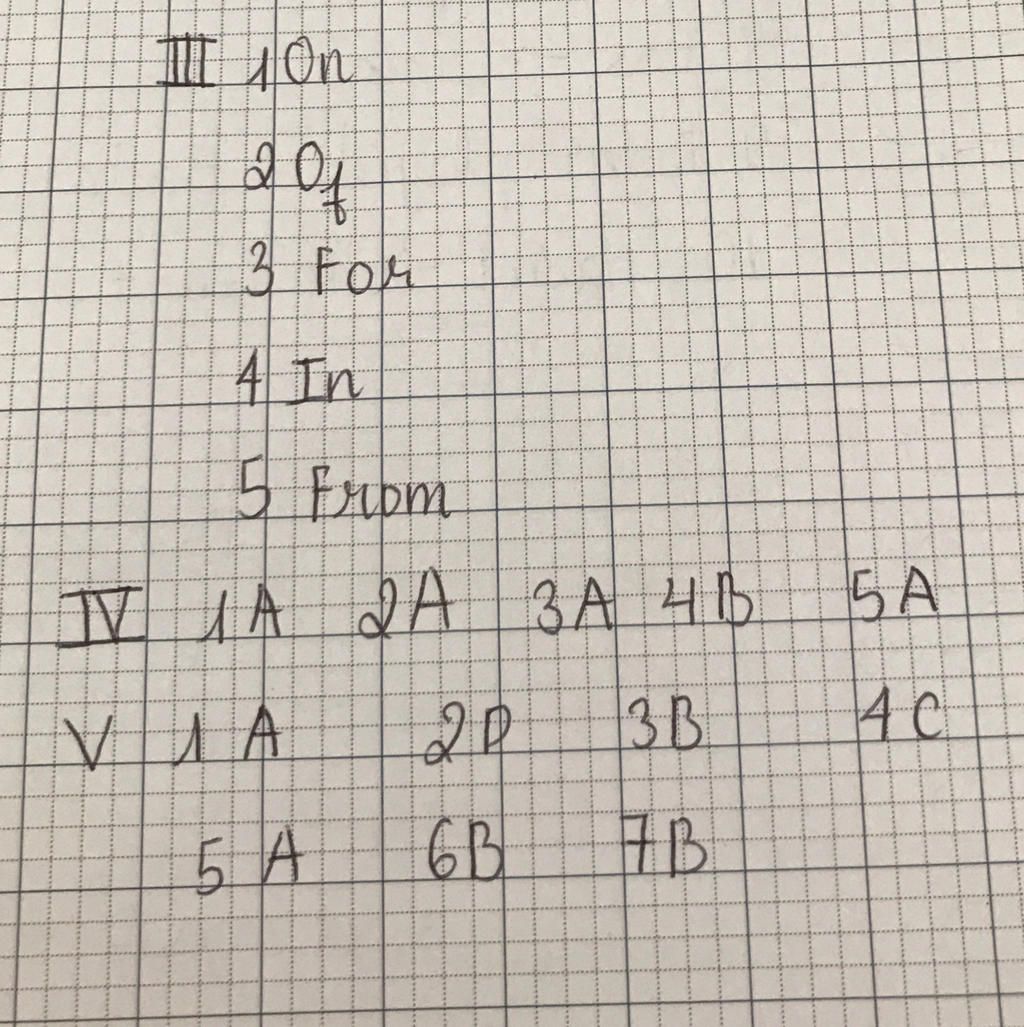 III 1 On
2 Of
3 For
4 In
5 From
IV 1A 2A 3A 4B 5A
V 1 A 2D 3B 4C
5 A 6B 7B